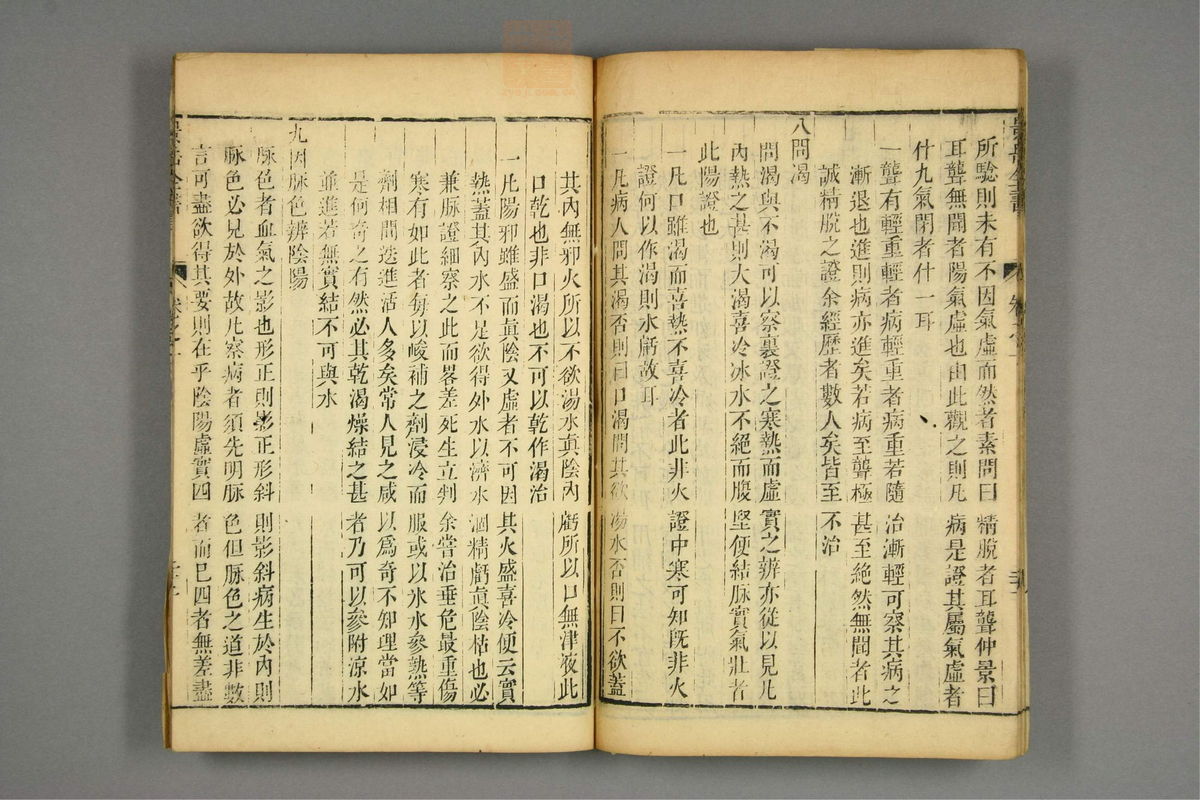 所騐則未有不因氣虛而然者素問曰精脫者耳聾仲景曰
耳聾無聞者陽氣虛也由此觀之則凡病是證其屬氣虛者
什九氣閉者什一耳
一聾有輕重輕者病輕重者病重若隨治漸輕可察其病之
漸退也進則病亦進矣若病至聾極甚至絶然無聞者此
誠精脫之證余經歷者數人矣皆至不治
八問渴
問渴與不渴可以察裏證之寒熱而虛實之辨亦從以見凡
內熱之甚則大渴喜冷冰水不絕而腹堅便結脉實氣壯者
此陽證也
一凡口雖渴而喜熱不喜冷者此非火證中寒可知既非火
證何以作渴則水虧故耳
一凡病人問其渴否則曰口渴問其欲湯水否則曰不欲蓋
其內無邪火所以不欲湯水眞陰內虧所以口無津液此
口乾也非口渴也不可以乾作渴治
一凡陽邪雖盛而眞陰又虛者不可因其火盛喜冷便云實
熱蓋其內水不足欲得外水以濟水涸精虧眞陰枯也必
兼脉證細察之此而畧差死生立判余嘗治垂危最重傷
寒有如此者每以峻補之劑浸冷而服或以冰水參熟等
劑相間迭進活人多矣常人見之咸以爲奇不知理當如
是何奇之有然必其乾渴燥結之甚者乃可以參附凉水
並進若無實結不可與水
九因脉色辨陰陽
脉色者血氣之影也形正則影正形斜則影斜病生於內則
脉色必見於外故凡察病者須先明脉色但脉色之道非數
言可盡欲得其要則在乎陰陽虛實四者而巳四者無差盡
景岳全書